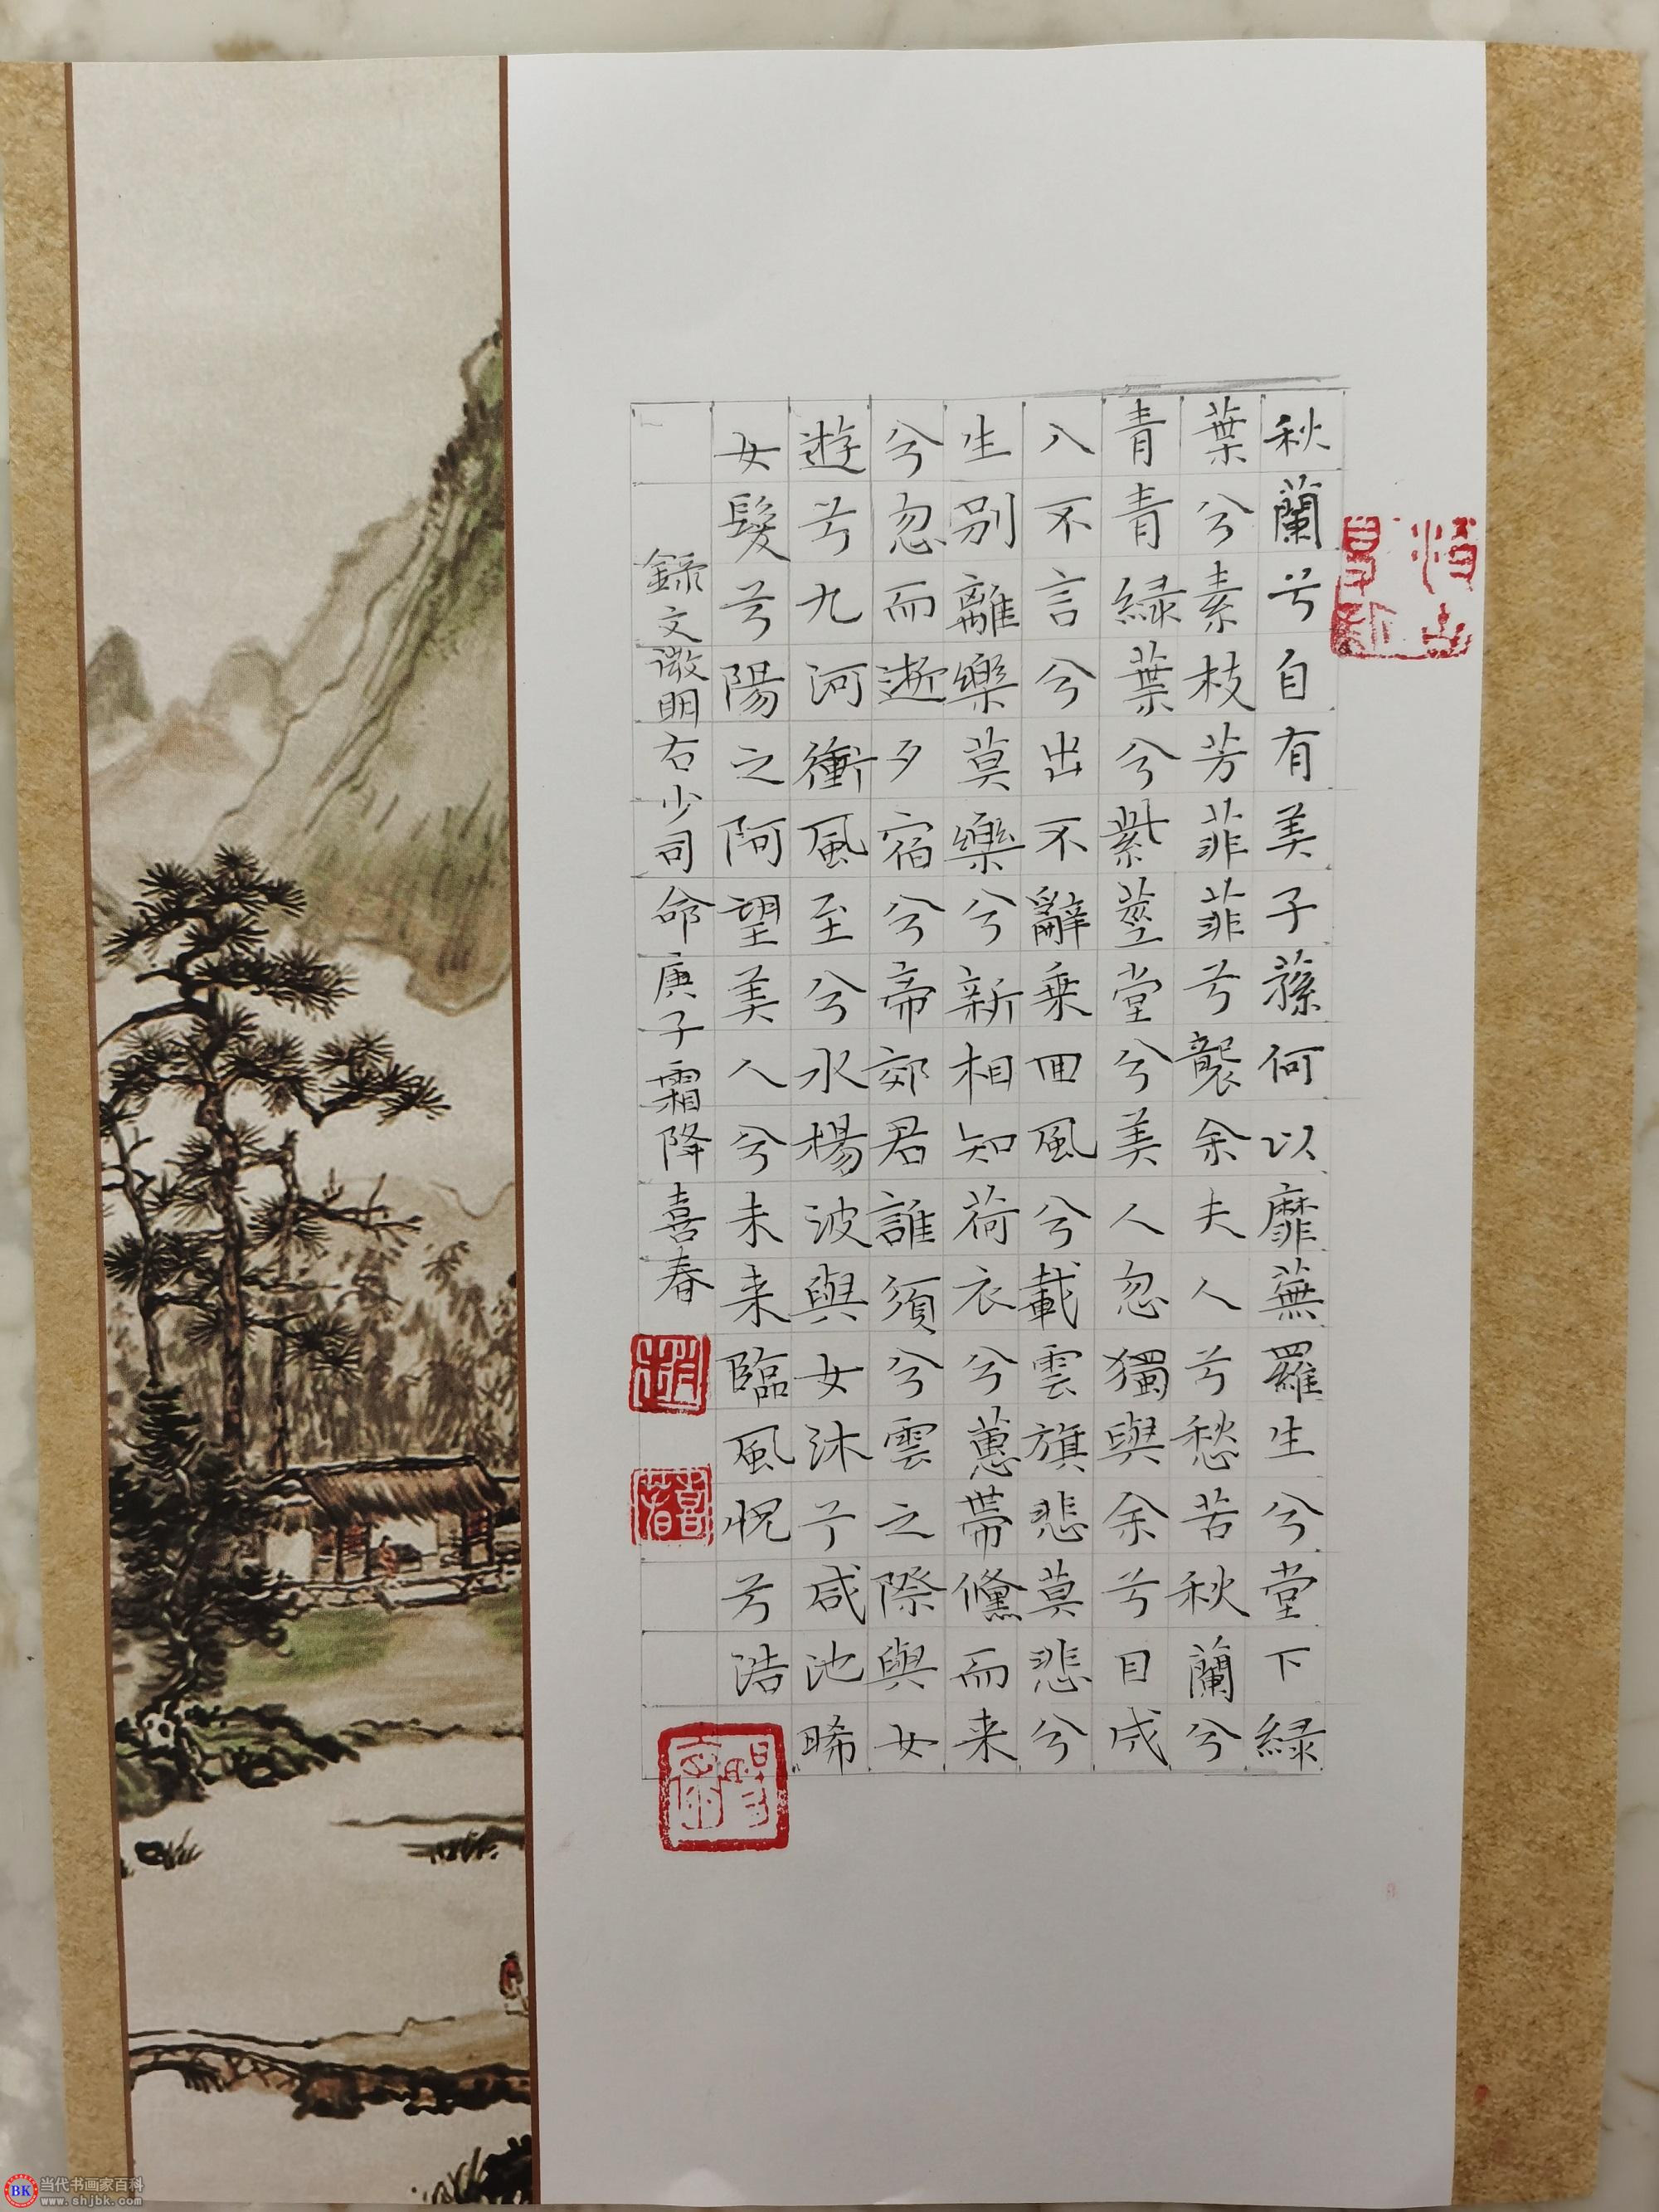 秋蘭兮自有美子蓀何以靡蕪羅生兮堂下緑
葉兮素枝芳菲菲兮襲余夫人兮愁苦秋蘭兮
青青緑葉兮紫莖堂兮美人忽獨與余兮目成
入不言兮出不辭乗回風兮載雲旗悲莫悲兮
生别離樂莫樂兮新相知荷衣兮蕙帶儵而来
兮忽而逝夕宿兮帝郊君誰須兮雲之際與女
遊兮九河衝風至兮水楊波與女沐于咸池晞
女髮兮陽之阿望美人兮未来臨風怳兮浩
錄文徵明右少司命庚子霜降喜春
趙
喜春
当代书画家百科
www.shjbk.com
BK